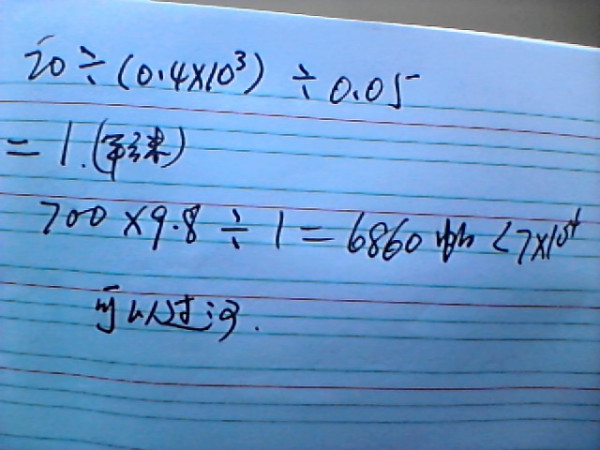 20÷(0.4×10³)÷0.05
=1.(平方米)
700×9.8÷1=6860 <7×10⁴
可以过河.